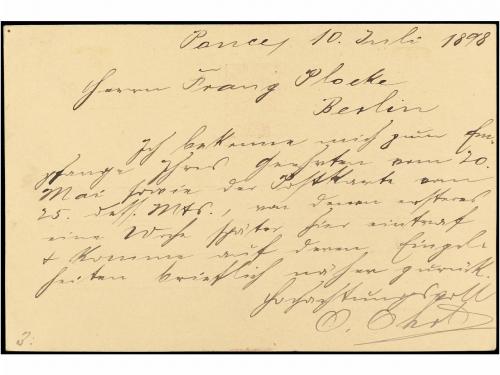 Ponce, 10. Juli 1898
Herrn Franz Plocke
Berlin
Ich bekenne mich zum Em-
pfange Ihres Geehrten vom 20.
Mai sowie der Postkarte vom
25. dess. Mts., von denen ersteres
eine Woche später hier eintraf
& komme auf deren Einzel-
heiten brieflich näher zurück.
Hochachtungsvoll
O.
3.